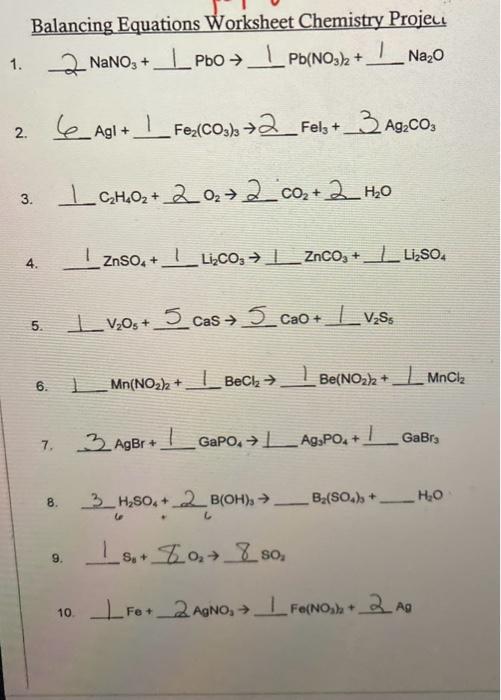 Balancing Equations Worksheet Chemistry Project
1. 2 NaNO₃ + 1 PbO → 1 Pb(NO₃)₂ + 1 Na₂O
2. 6 AgI + 1 Fe₂(CO₃)₃ → 2 FeI₃ + 3 Ag₂CO₃
3. 1 C₂H₄O₂ + 2 O₂ → 2 CO₂ + 2 H₂O
4. 1 ZnSO₄ + 1 Li₂CO₃ → 1 ZnCO₃ + 1 Li₂SO₄
5. 1 V₂O₅ + 5 CaS → 5 CaO + 1 V₂S₅
6. 1 Mn(NO₂)₂ + 1 BeCl₂ → 1 Be(NO₂)₂ + 1 MnCl₂
7. 3 AgBr + 1 GaPO₄ → 1 Ag₃PO₄ + 1 GaBr₃
8. 3 H₂SO₄ + 2 B(OH)₃ → ___ B₂(SO₄)₃ + ___ H₂O
9. 1 S₈ + 8 O₂ → 8 SO₂
10. 1 Fe + 2 AgNO₃ → 1 Fe(NO₃)₂ + 2 Ag